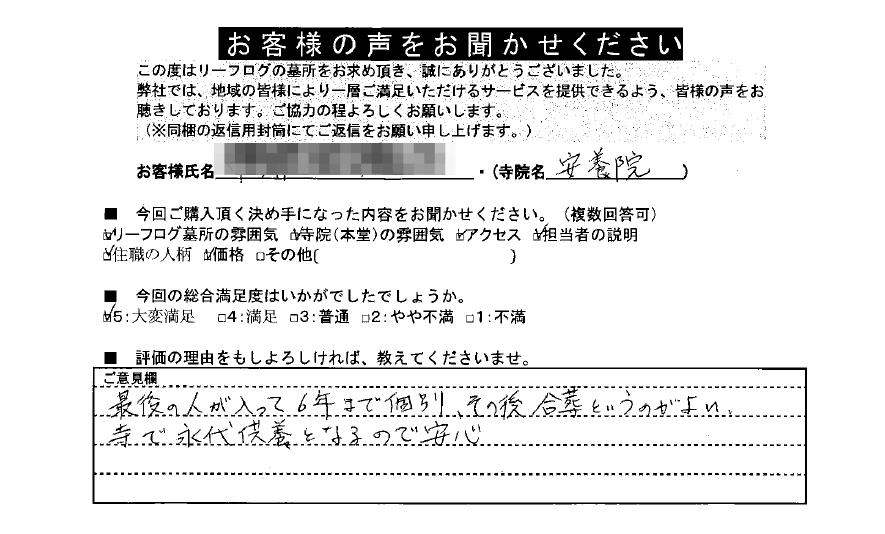 お客様の声をお聞かせください
この度はリーフログの墓所をお求め頂き、誠にありがとうございました。
弊社では、地域の皆様により一層ご満足いただけるサービスを提供できるよう、皆様の声をお
聴きしております。ご協力の程よろしくお願いします。
（※同梱の返信用封筒にてご返信をお願い申し上げます。）
お客様氏名 ・(寺院名 安養院 )
■ 今回ご購入頂く決め手になった内容をお聞かせください。（複数回答可）
☑リーフログ墓所の雰囲気 ☑寺院(本堂)の雰囲気 ☑アクセス ☑担当者の説明
☑住職の人柄 ☑価格 □その他( )
■ 今回の総合満足度はいかがでしたでしょうか。
☑5:大変満足 □4:満足 □3:普通 □2:やや不満 □1:不満
■ 評価の理由をもしよろしければ、教えてくださいませ。
ご意見欄
最後の人が入って6年まで個別、その後合葬というのがよい、
寺で永代供養となるので安心